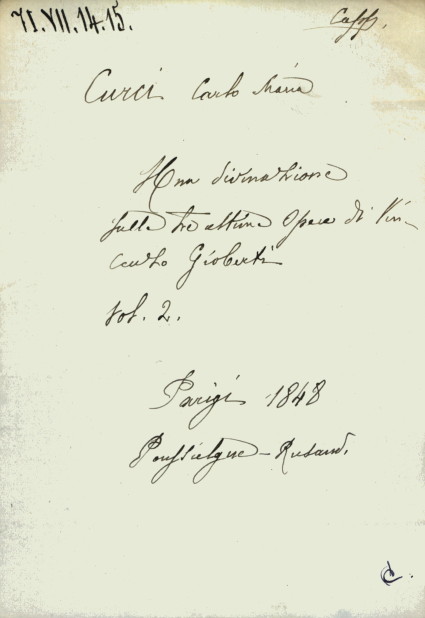 71.VII.14.15.
Capp.
Curci Carlo Maria
Una divinazione
sulle tre ultime Opere di Vin-
cenzo Gioberti
Vol. 2.
Parigi 1848
Poussielgue-Rusand.
C.